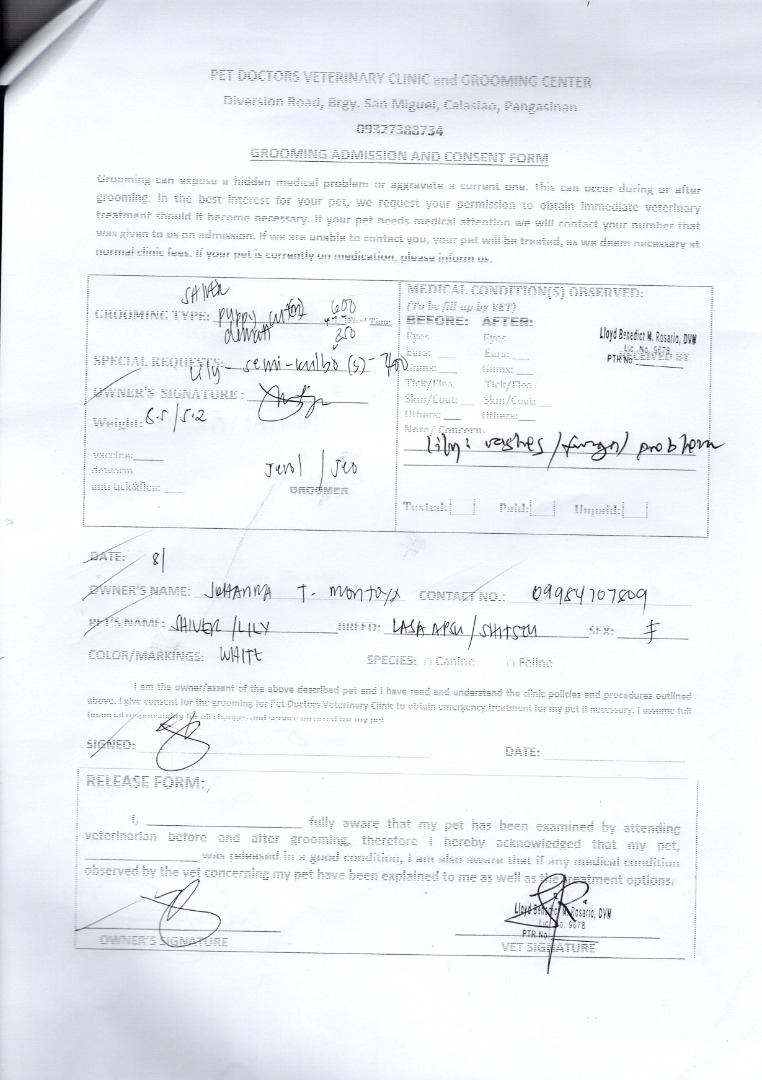 PET DOCTORS VETERINARY CLINIC and GROOMING CENTER
Diversion Road, Brgy. San Miguel, Calasiao, Pangasinan
09327388734
GROOMING ADMISSION AND CONSENT FORM
Grooming can expose a hidden medical problem or aggravate a current one. This can occur during or after
grooming. In the best interest for your pet, we request your permission to obtain immediate veterinary
treatment should it become necessary. If your pet needs medical attention we will contact your number that
was given to us on admission. If we are unable to contact you, your pet will be treated, as we deem necessary at
normal clinic fees. If your pet is currently on medication, please inform us.
SHIVER
GROOMING TYPE: puppy cut(s) 600
Time:
dematt 250
SPECIAL REQUESTS:
Lily - semi-kalbo (s) - 400
OWNER'S SIGNATURE:
Weight: 6.5/5.2
vaccine:
deworm
anti tick&flea:
GROOMER
MEDICAL CONDITION(S) OBSERVED:
(To be fill up by VET)
BEFORE: AFTER:
Eyes Eyes
Ears: Ears:
Gums: Gums:
Tick/Flea Tick/Flea
Skin/Coat: Skin/Coat:
Others: Others:
Note/ Concern:
Lloyd Benedict M. Rosario, DVM
Lic. No. 9678
PTR No.
RECEIVED BY
lily: rashes/fungal problem
Texted: Paid: Unpaid:
DATE: 8/
OWNER'S NAME: JOHANNA T. Montoya CONTACT NO.: 09984707809
PET'S NAME: SHIVER/LILY BREED: LASA APSU/SHITSU SEX: F
COLOR/MARKINGS: WHITE SPECIES: Canine Feline
I am the owner/assent of the above described pet and I have read and understand the clinic policies and procedures outlined
above. I give consent for the grooming for Pet Doctors Veterinary Clinic to obtain emergency treatment for my pet if necessary. I assume full
financial responsibility for all charges and service incurred for my pet
SIGNED: DATE:
RELEASE FORM:
I, fully aware that my pet has been examined by attending
veterinarian before and after grooming, therefore I hereby acknowledged that my pet,
was released in a good condition, I am also aware that if any medical condition
observed by the vet concerning my pet have been explained to me as well as the treatment options.
Lloyd Benedict M. Rosario, DVM
Lic. No. 9678
PTR No.
OWNER'S SIGNATURE VET SIGNATURE